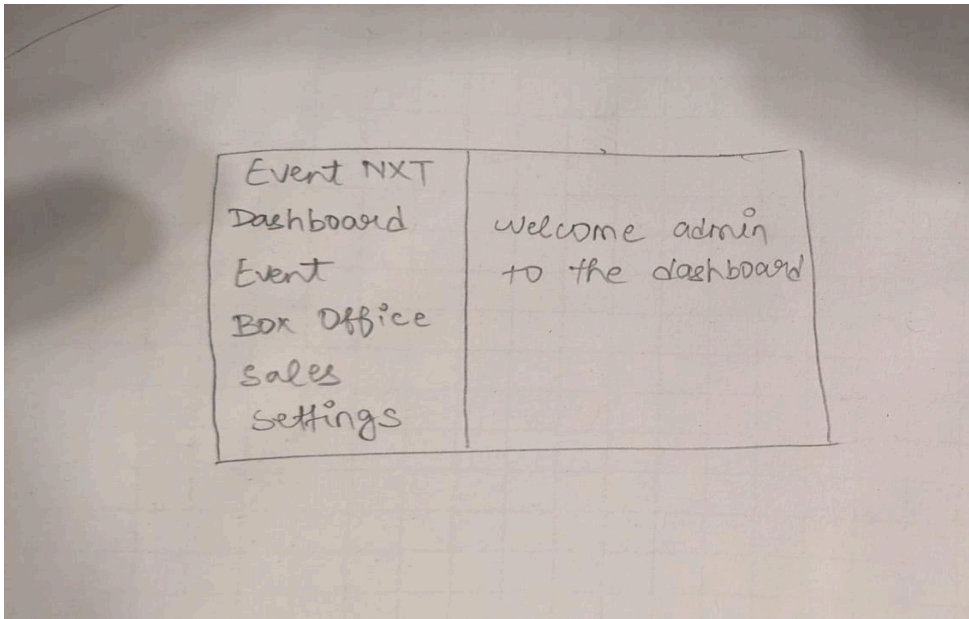 Event NXT
Dashboard
Event
Box Office
Sales
Settings
Welcome admin
to the dashboard